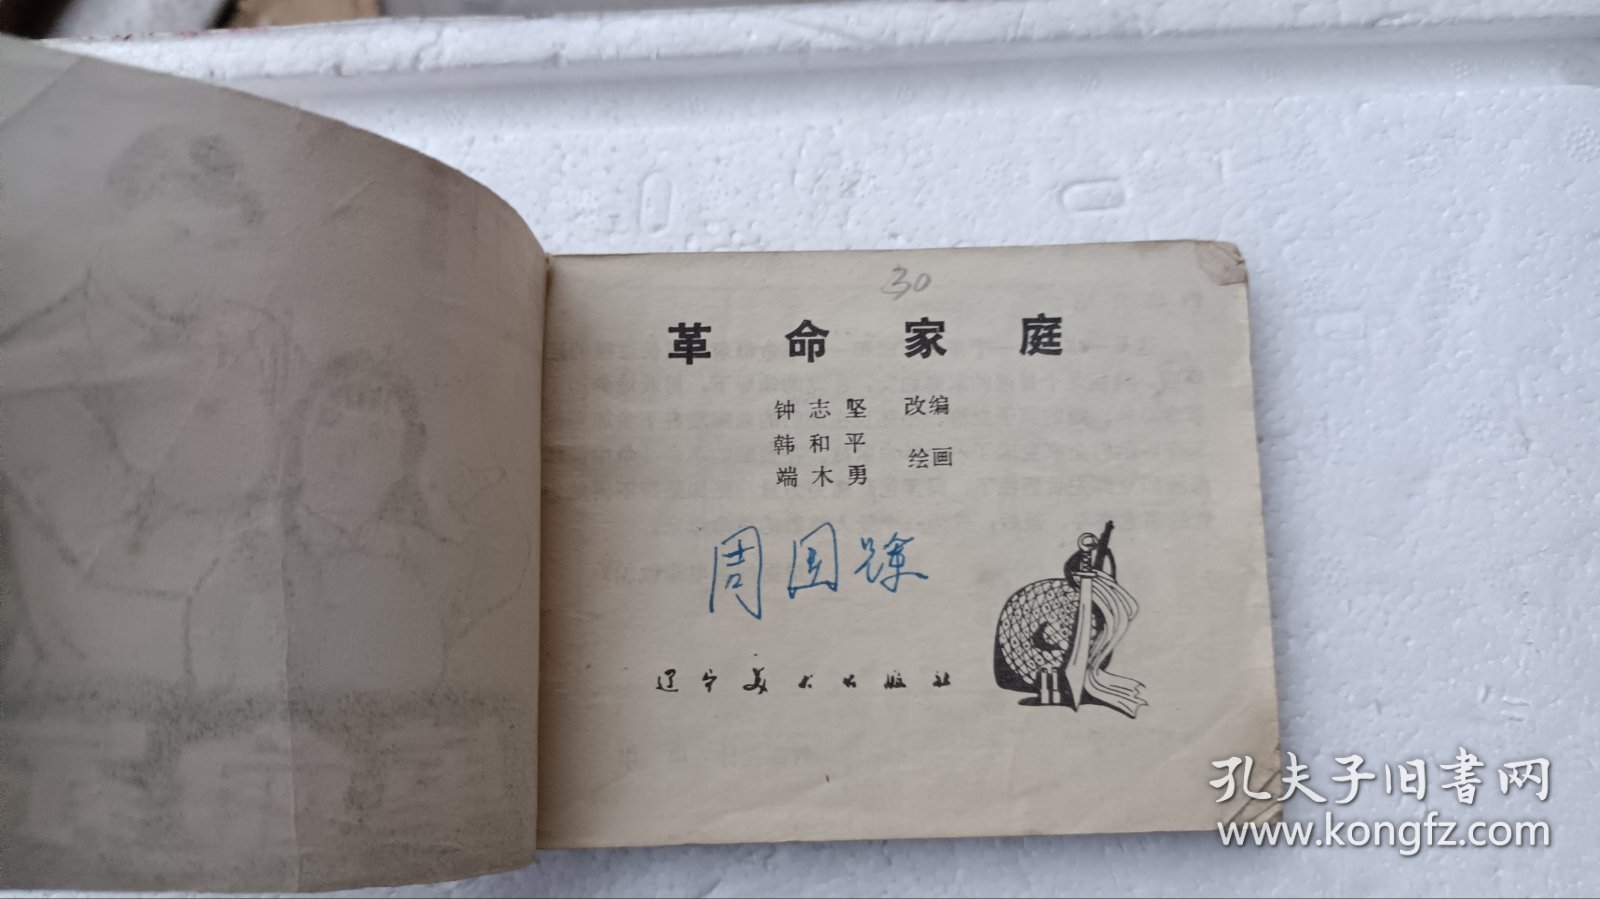 30
革命家庭
钟志坚 改编
韩和平
端木勇 绘画
周国
辽宁美术出版社
孔夫子旧书网
www.kongfz.com